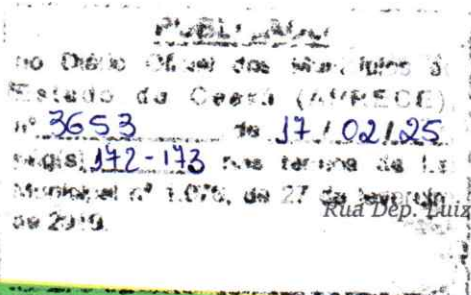 PUBLICADO
no Diário Oficial dos Municípios
Estado do Ceará (APRECE)
nº 3653 de 17/02/25
págs. 172-173 nos termos da Lei
Municipal nº 1.076, de 27 de fevereiro
de 2019.
Rua Dep. Luiz